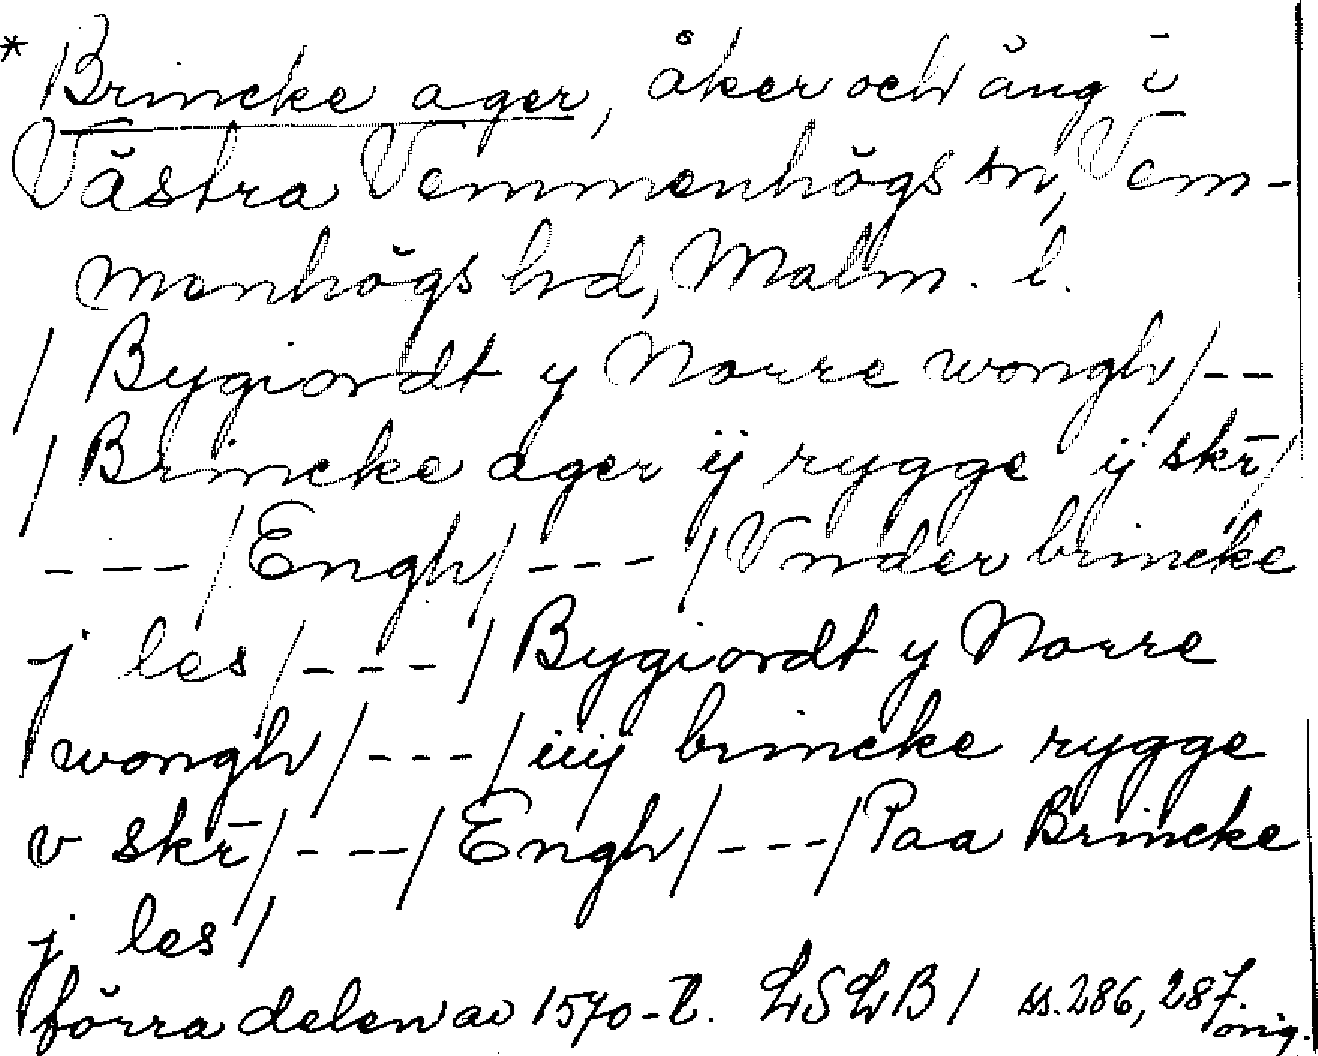 * Brincke ager, åker och äng i
Västra Vemmenhögs sn, Vem-
menhögs hd, Malm. l.
/ Bygiordt y Norre wongh/--
/ Brincke ager ij rygge ij skr̄/
---/ Engh/ --- / Vnder brincke
j les/ --- / Bygiordt y Norre
wongh/ --- / iiij brincke rygge
v skr̄/ --- / Engh/ --- / Paa Brincke
j les /
förra delen av 1570-t. LSLB 1 ss. 286, 287.
orig.